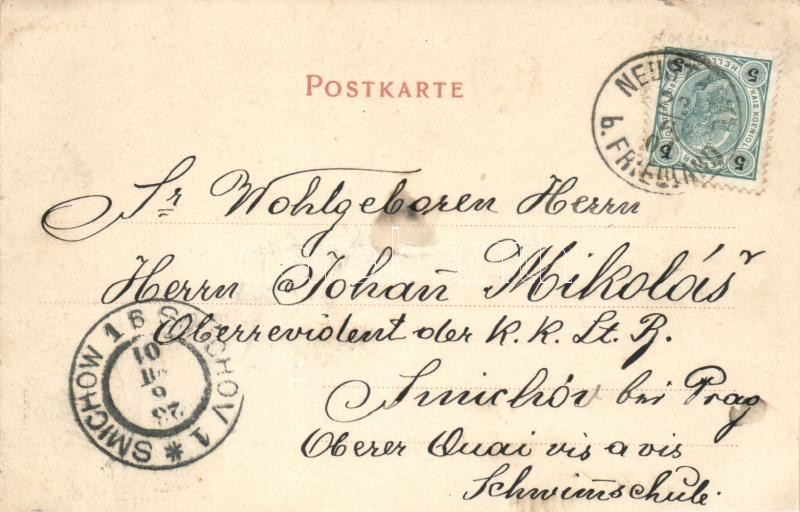 POSTKARTE
NEUST
b. FRIEDL
5 5
HELLER
5 5
Sr Wohlgeboren Herrn
Herrn Johan̄ Mikoláš
Oberrevident der K. K. St. B.
Smichóv bei Prag
Oberer Quai vis a vis
Schwim̄schule.
SMICHOV 1 * SMICHOW 1
23
6
01